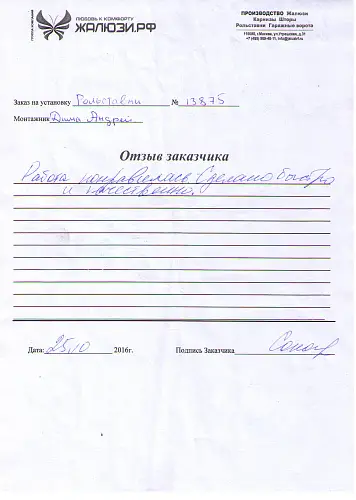 ЛЮБОВЬ К КОМФОРТУ
ЖАЛЮЗИ.РФ
ПРОИЗВОДСТВО Жалюзи
Карнизы Шторы
Рольставни Гаражные ворота
Заказ на установку Рольставни № 13875
Монтажник Дима Андрей
Отзыв заказчика
Работа понравилась. Сделано быстро
и качественно.
Дата: 25.10 2016г. Подпись Заказчика